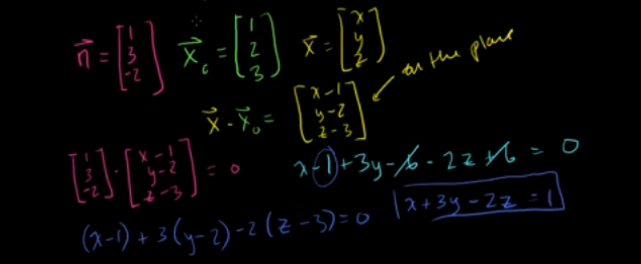 n⃗ = [1 3 -2] x⃗₀ = [1 2 3] x⃗ = [x y z] on the plane
x⃗ - x⃗₀ = [x-1 y-2 z-3]
[1 3 -2] · [x-1 y-2 z-3] = 0
x-1+3y-6-2z+6 = 0
(x-1)+3(y-2)-2(z-3)=0
x+3y-2z=1